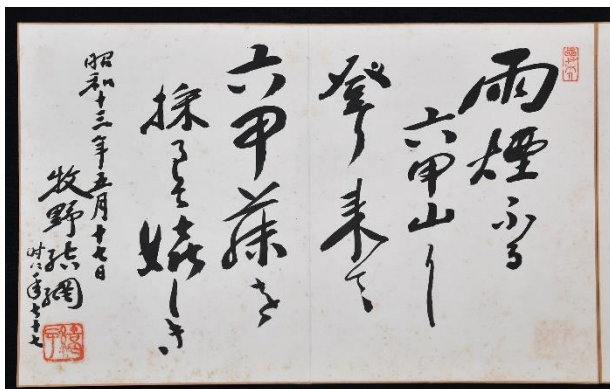 雨煙ふる
六甲山に
登り来て
六甲藤を
採るそ嬉しき
昭和十三年五月十七日
牧野結網
時に年七十七